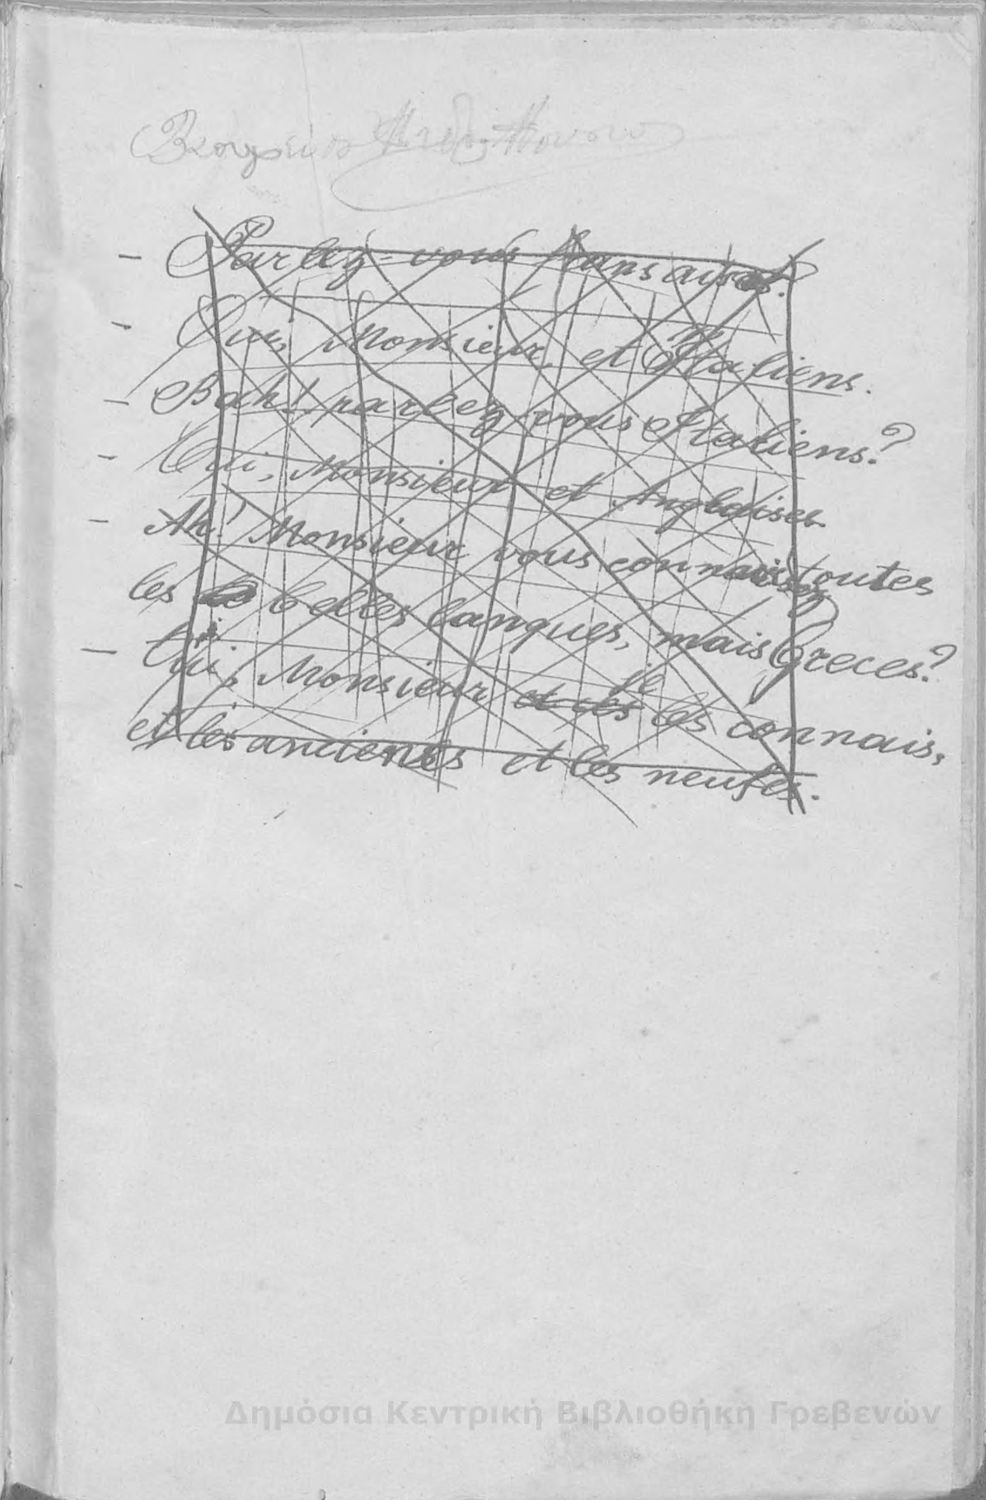 — Parlez-vous fransaises.
— Oui, Monsieur, et Italiens.
— Bah! parlez-vous Italiens?
— Oui, Monsieur et Anglaises.
— Ah! Monsieur vous connaissez toutes
les belles langues, mais Greces?
— Oui, Monsieur je les connais,
et les anciennes et les neufes.
Δημόσια Κεντρική Βιβλιοθήκη Γρεβενών